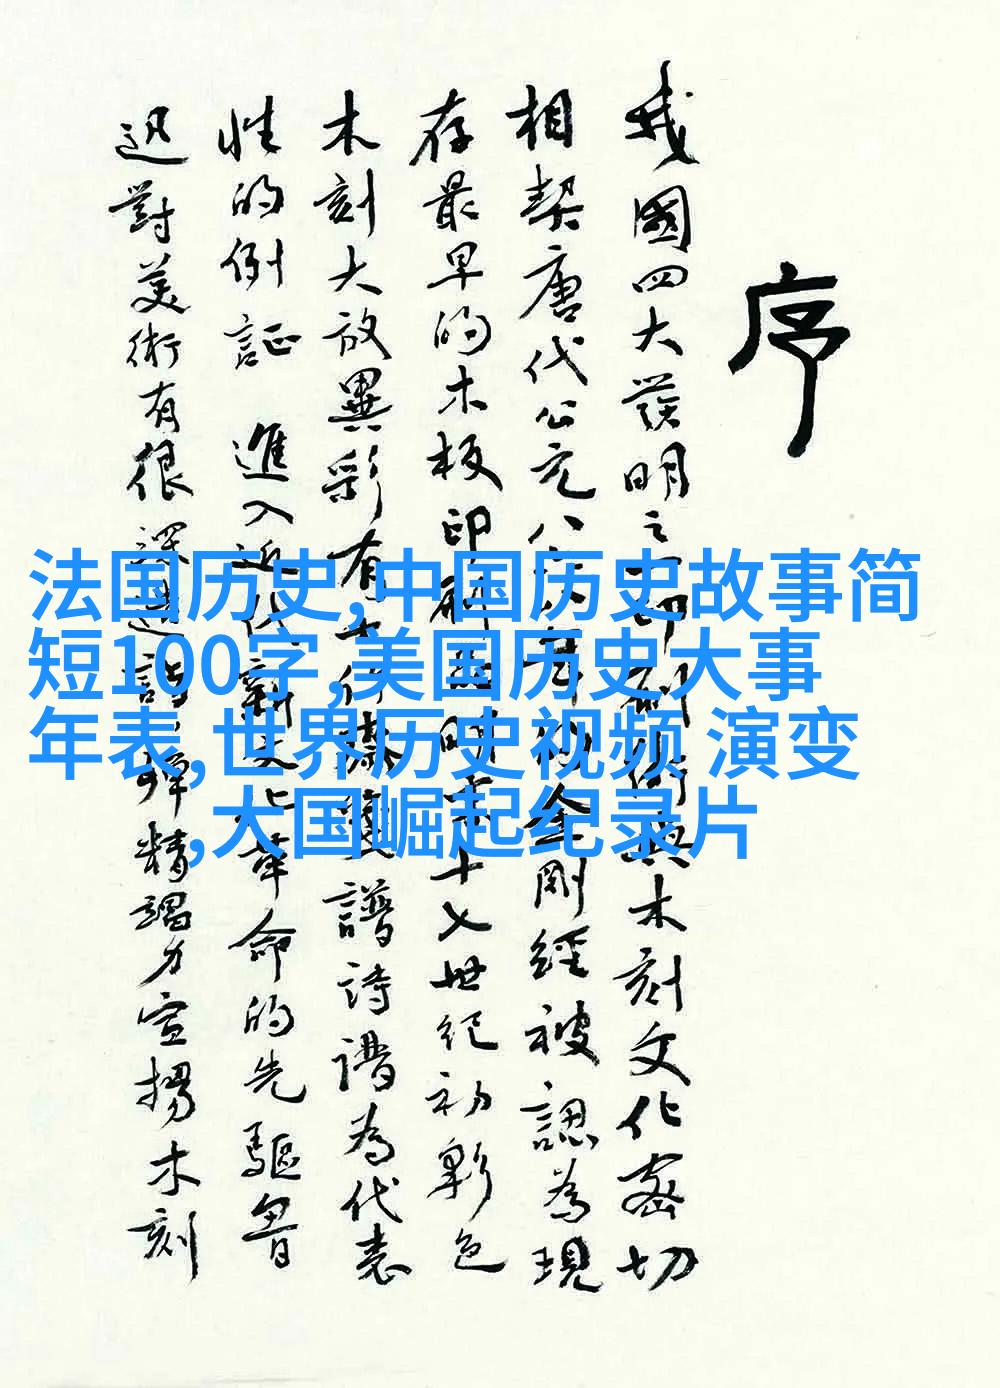 序
我國四大發明之一印刷術與木刻文化密切
相契唐代公元八六八年的金剛經被認為現
存最早的木板印刷明末十七世紀初彩色
木刻大放異彩有十竹齋畫譜詩譜為代表
性的例証 進入近代新文化革命的先驅魯
迅對美術有很深造詣殫精竭力宣揚木刻
法国历史,中国历史故事简
短100字,美国历史大事
年表,世界历史视频 演变
,大国崛起纪录片